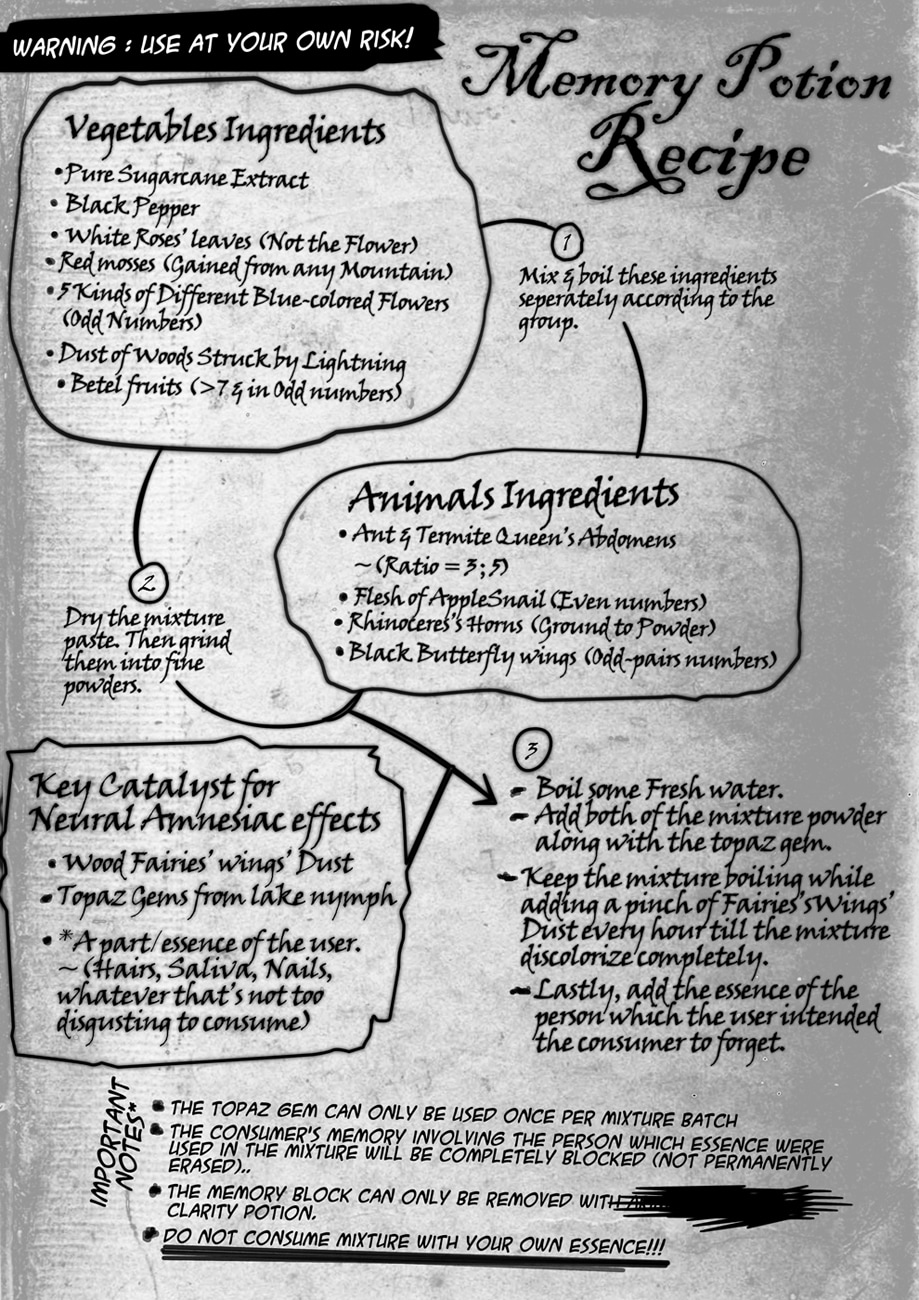 WARNING : USE AT YOUR OWN RISK!
Memory Potion
Recipe
Vegetables Ingredients
•Pure Sugarcane Extract
• Black Pepper
• White Roses' leaves (Not the Flower)
•Red mosses (Gained from any Mountain)
•5 Kinds of Different Blue-colored Flowers
(Odd Numbers)
•Dust of Woods Struck by Lightning
• Betel fruits (>7 & in Odd numbers)
1
Mix & boil these ingredients
seperately according to the
group.
Animals Ingredients
• Ant & Termite Queen's Abdomens
~(Ratio = 3;5)
• Flesh of AppleSnail (Even numbers)
• Rhinoceres's Horns (Ground to Powder)
•Black Butterfly wings (Odd-pairs numbers)
2
Dry the mixture
paste. Then grind
them into fine
powders.
Key Catalyst for
Neural Amnesiac effects
• Wood Fairies' wings' Dust
•Topaz Gems from lake nymph
• *A part/essence of the user.
~(Hairs, Saliva, Nails,
whatever that's not too
disgusting to consume)
3
- Boil some Fresh water.
- Add both of the mixture powder
along with the topaz gem.
-Keep the mixture boiling while
adding a pinch of Fairies'sWings'
Dust every hour till the mixture
discolorize completely.
-Lastly, add the essence of the
person which the user intended
the consumer to forget.
IMPORTANT
NOTES*
• THE TOPAZ GEM CAN ONLY BE USED ONCE PER MIXTURE BATCH
• THE CONSUMER'S MEMORY INVOLVING THE PERSON WHICH ESSENCE WERE
USED IN THE MIXTURE WILL BE COMPLETELY BLOCKED (NOT PERMANENTLY
ERASED)..
• THE MEMORY BLOCK CAN ONLY BE REMOVED WITH
CLARITY POTION.
• DO NOT CONSUME MIXTURE WITH YOUR OWN ESSENCE!!!